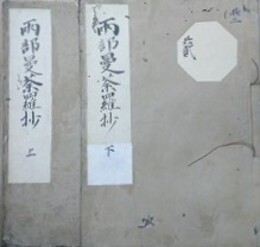 両部曼荼羅抄
上
両部曼荼羅抄
下